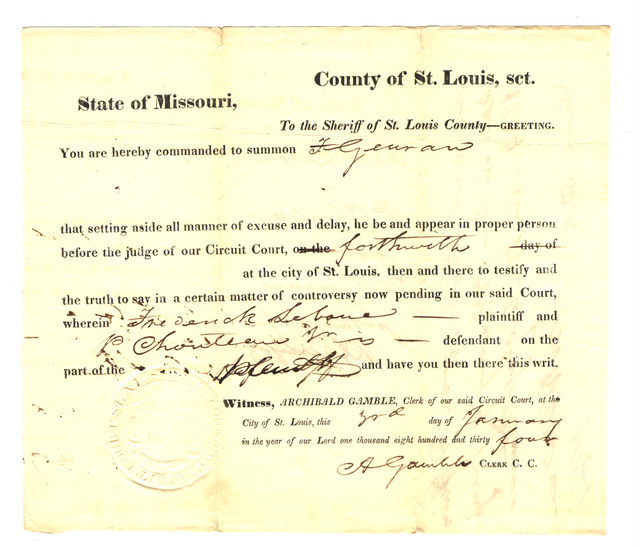 County of St. Louis, sct.
State of Missouri,
To the Sheriff of St. Louis County—GREETING.
You are hereby commanded to summon F
that setting aside all manner of excuse and delay, he be and appear in proper person
before the judge of our Circuit Court, on the forthwith day of
at the city of St. Louis, then and there to testify and
the truth to say in a certain matter of controversy now pending in our said Court,
wherein Frederick — plaintiff and
P Chouteau — defendant on the
part of the Plentff and have you then there this writ.
Witness, ARCHIBALD GAMBLE, Clerk of our said Circuit Court, at the
City of St. Louis, this 3rd day of January
in the year of our Lord one thousand eight hundred and thirty four
A Gamble CLERK C. C.